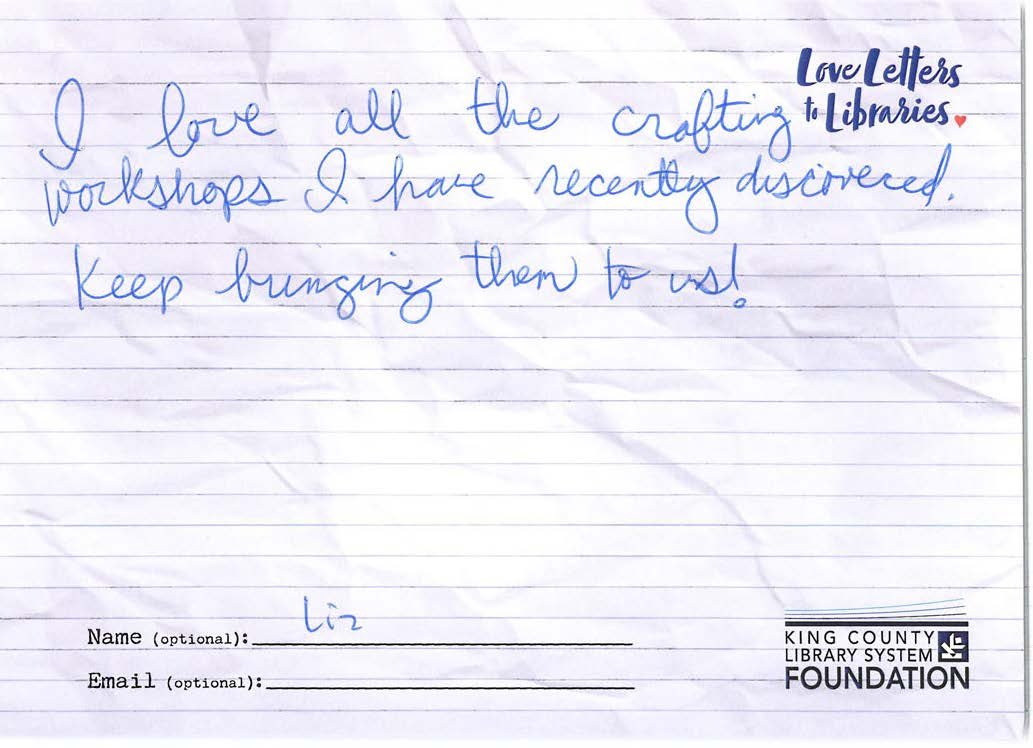 Love Letters
to Libraries
I love all the crafting
workshops I have recently discovered.
Keep bringing them to us!
Liz
Name (optional):
Email (optional):
KING COUNTY
LIBRARY SYSTEM
FOUNDATION